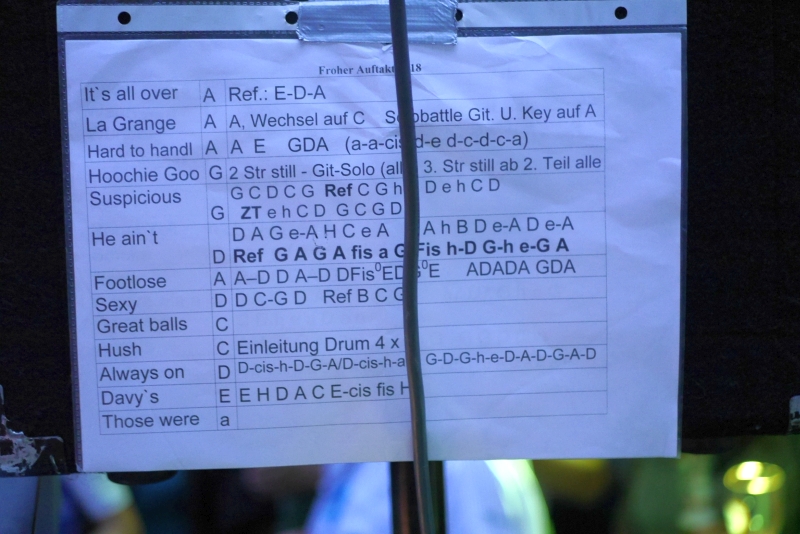 Froher Auftakt 18
It`s all over A Ref.: E-D-A
La Grange A A, Wechsel auf C Git. U. Key auf A
Hard to handl A A E GDA (a-a-cis d-e d-c-d-c-a)
Hoochie Goo G 2 Str still - Git-Solo (alle 3. Str still ab 2. Teil alle
Suspicious G C D C G Ref C G h D e h C D
G ZT e h C D G C G D
He ain`t D A G e-A H C e A A h B D e-A D e-A
D Ref G A G A fis a G Fis h-D G-h e-G A
Footlose A A–D D A–D DFis⁰ED G⁰E ADADA GDA
Sexy D D C-G D Ref B C G
Great balls C
Hush C Einleitung Drum 4 x
Always on D D-cis-h-D-G-A/D-cis-h-a G-D-G-h-e-D-A-D-G-A-D
Davy`s E E H D A C E-cis fis H
Those were a